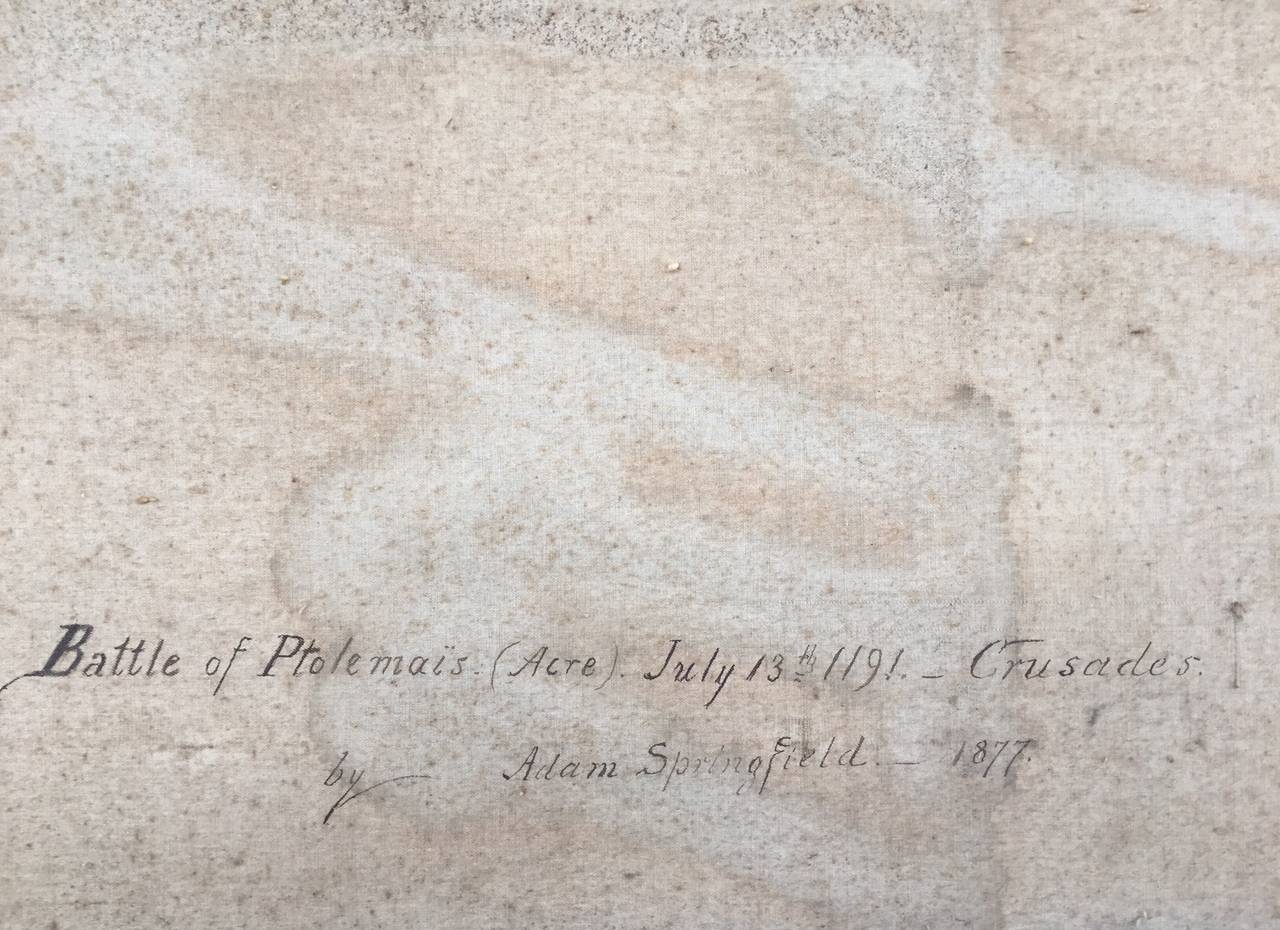 Battle of Ptolemaïs. (Acre). July 13th 1191. _ Crusades.
by Adam Springfield. _ 1877.